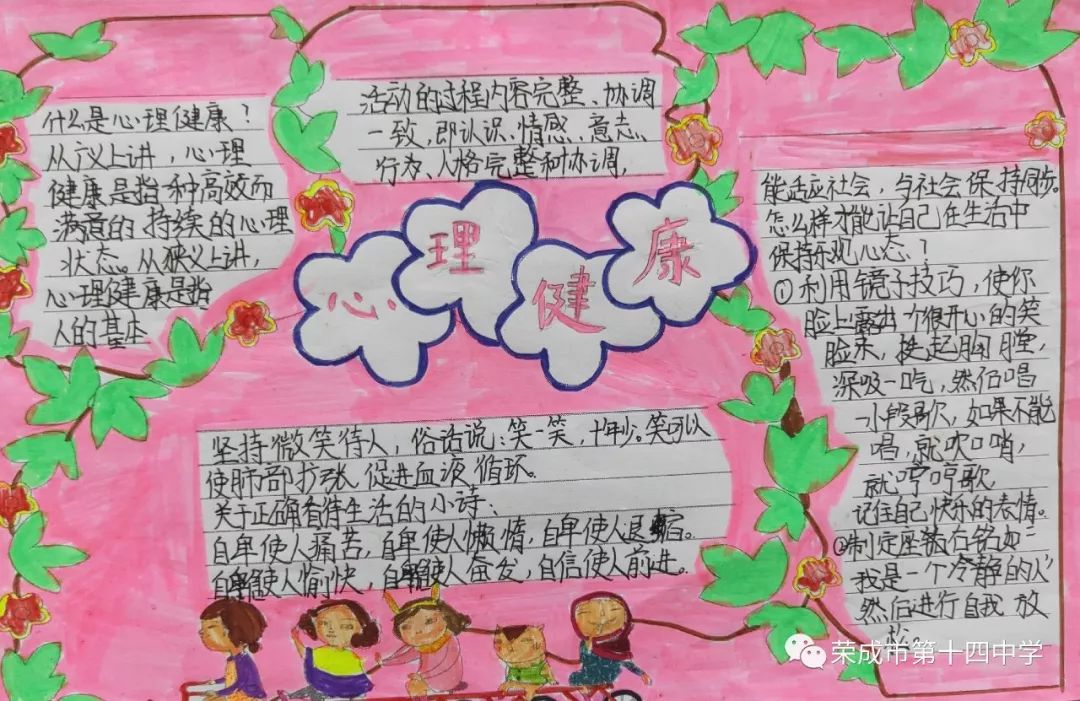 什么是心理健康？
从广义上讲，心理
健康是指一种高效而
满意的持续的心理
状态。从狭义上讲，
心理健康是指
人的基本
活动的过程内容完整、协调
一致，即认识、情感、意志、
行为、人格完整和协调，
能适应社会，与社会保持同步。
怎么样才能让自己在生活中
保持乐观心态？
①利用镜子技巧，使你
脸上露出一个很开心的笑
脸来，挺起胸膛，
深吸一吃，然后唱
一小段歌，如果不能
唱，就吹口哨，
就哼哼歌
记住自己快乐的表情。
②制定座右铭如一
我是一个冷静的人"
然后进行自我放
松。
心理健康
坚持微笑待人，俗话说：笑一笑，十年少。笑可以
使肺部扩张，促进血液循环。
关于正确看待生活的小诗：
自卑使人痛苦，自卑使人懒惰，自卑使人退缩。
自信使人愉快，自信使人奋发，自信使人前进。
荣成市第十四中学